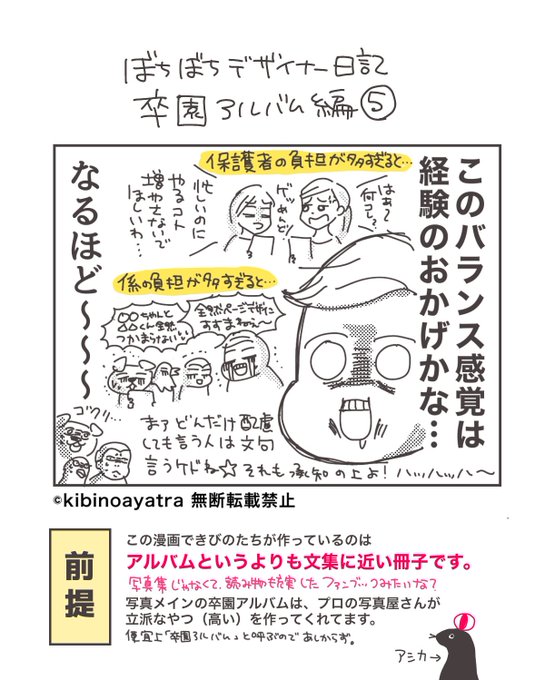 ぼちぼちデザイナー日記
卒園アルバム編⑤
このバランス感覚は
経験のおかげかな…
保護者の負担が多すぎると…
はぁ?
何コレ?
ゲッ
めんど
忙しいのに
やるコト
増やさないで
ほしいわ…
なるほど〜〜〜
係の負担が多すぎると…
全然ページデザイン
すすまねぇ〜
○○ちゃんと
△△くん全然
つかまらない
ゴクリ…
まァどんだけ配慮
しても言う人は文句
言うケドね☆それも承知の上よ!ハッハッハ〜
©kibinoayatra 無断転載禁止
前提
この漫画できびのたちが作っているのは
アルバムというよりも文集に近い冊子です。
写真集じゃなくて、読み物も充実したファンブックみたいな?
写真メインの卒園アルバムは、プロの写真屋さんが
立派なやつ(高い)を作ってくれてます。
便宜上「卒園アルバム」と呼ぶので あしからず。
アシカ→